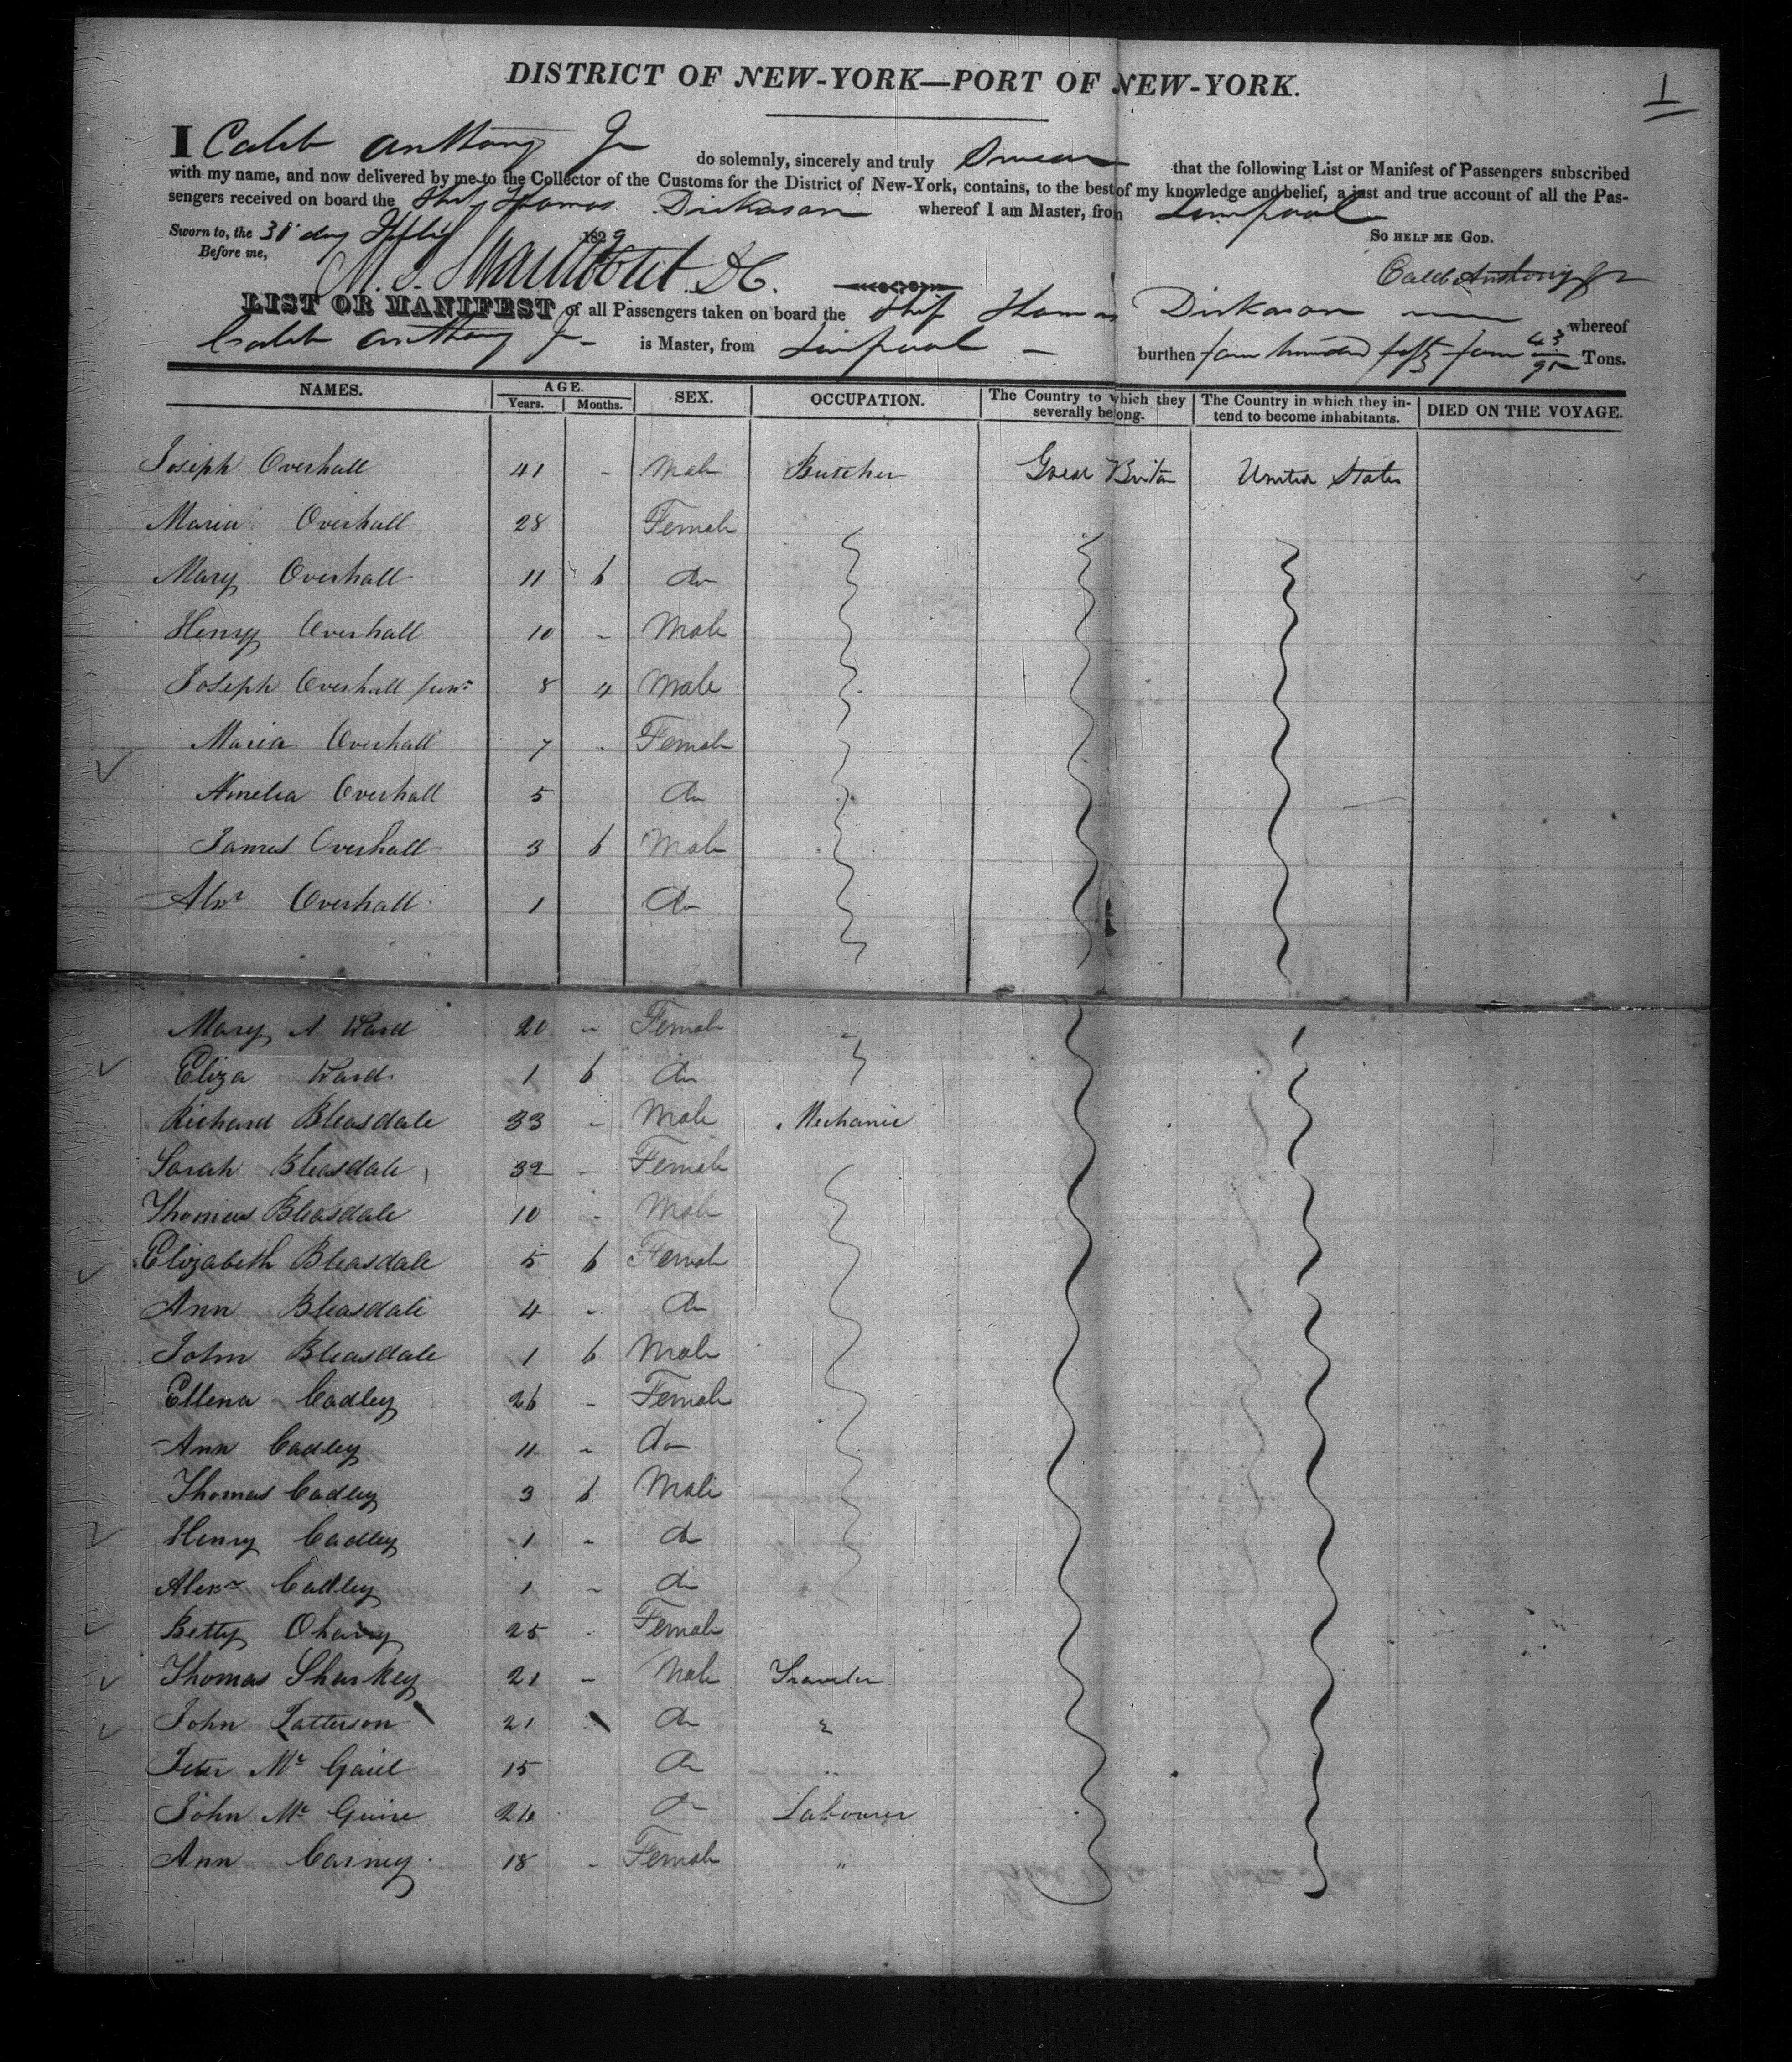 1
DISTRICT OF NEW-YORK—PORT OF NEW-YORK.
I Caleb Anthony Jr do solemnly, sincerely and truly Swear that the following List or Manifest of Passengers subscribed
with my name, and now delivered by me to the Collector of the Customs for the District of New-York, contains, to the best of my knowledge and belief, a just and true account of all the Pas-
sengers received on board the Ship Thomas Dickason whereof I am Master, from Liverpool
Sworn to, the 31 day 1829 SO HELP ME GOD.
Before me, Caleb Anthony Jr
LIST OR MANIFEST of all Passengers taken on board the Ship Thomas Dickason whereof
Caleb Anthony Jr is Master, from Liverpool burthen four hundred fifty four 43/95 Tons.
NAMES. AGE. SEX. OCCUPATION. The Country to which they severally belong. The Country in which they in-tend to become inhabitants. DIED ON THE VOYAGE.
Years. Months.
Joseph Overhall 41 - Male Butcher Great Britan United States
Maria Overhall 28 Female
Mary Overhall 11 6 do
Henry Overhall 10 - Male
Joseph Overhall junr 8 4 Male
Maria Overhall 7 .. Female
Amelia Overhall 5 do
James Overhall 3 6 Male
Alxr Overhall 1 do
Mary A Ward 20 - Female
Eliza Ward 1 6 do
Richard Bleasdale 33 - Male Mechanic
Sarah Bleasdale 32 - Female
Thomas Bleasdale 10 - Male
Elizabeth Bleasdale 5 6 Female
Ann Bleasdale 4 - do
John Bleasdale 1 6 Male
Ellena Cadley 26 - Female
Ann Cadley 11 - do
Thomas Cadley 3 6 Male
Henry Cadley 1 - do
Alexr Cadley 1 - do
Betty 25 - Female
Thomas Sharkey 21 - Male Traveler
John Patterson 21 do "
Peter Mc 15 do "
John Mc Guire 26 do Labourer
Ann Carney 18 - Female "